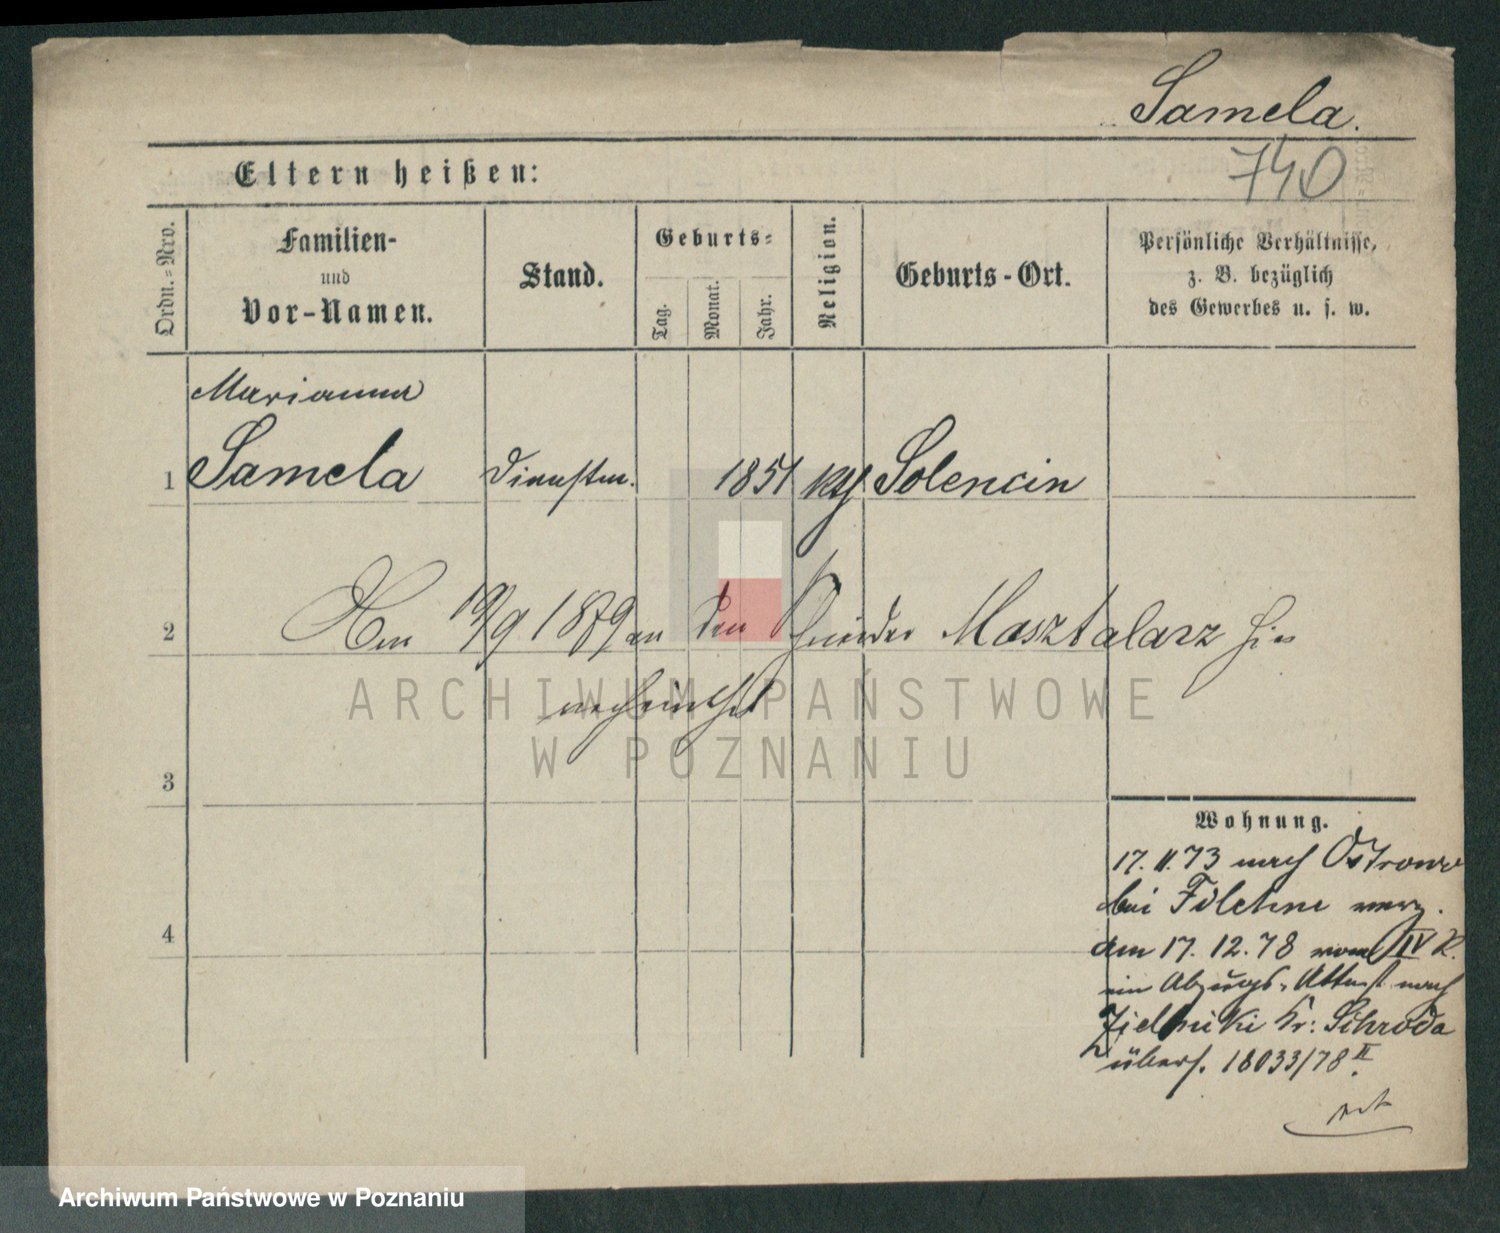 Samela.
740
Eltern heißen:
Ordn.=Nro.
Familien-
und
Vor-Namen.
Stand.
Geburts=
Tag.
Monat.
Jahr.
Religion.
Geburts-Ort.
Persönliche Verhältnisse,
z. B. bezüglich
des Gewerbes u. s. w.
Marianna
1 Samela Dienstm. 1851 kth Solencin
2 Am 19/9 1879 an den Schneider Masztalarz hier
verheirathet
3
4
Wohnung.
17.11.73 nach Ostrowo
bei Filehne verz.
Am 17.12.78 vom IV R.
ein Abzugs-Attest nach
Zielniki Kr: Schroda
übers. 18033/78 II.
ARCHIWUM PAŃSTWOWE
W POZNANIU
Archiwum Państwowe w Poznaniu